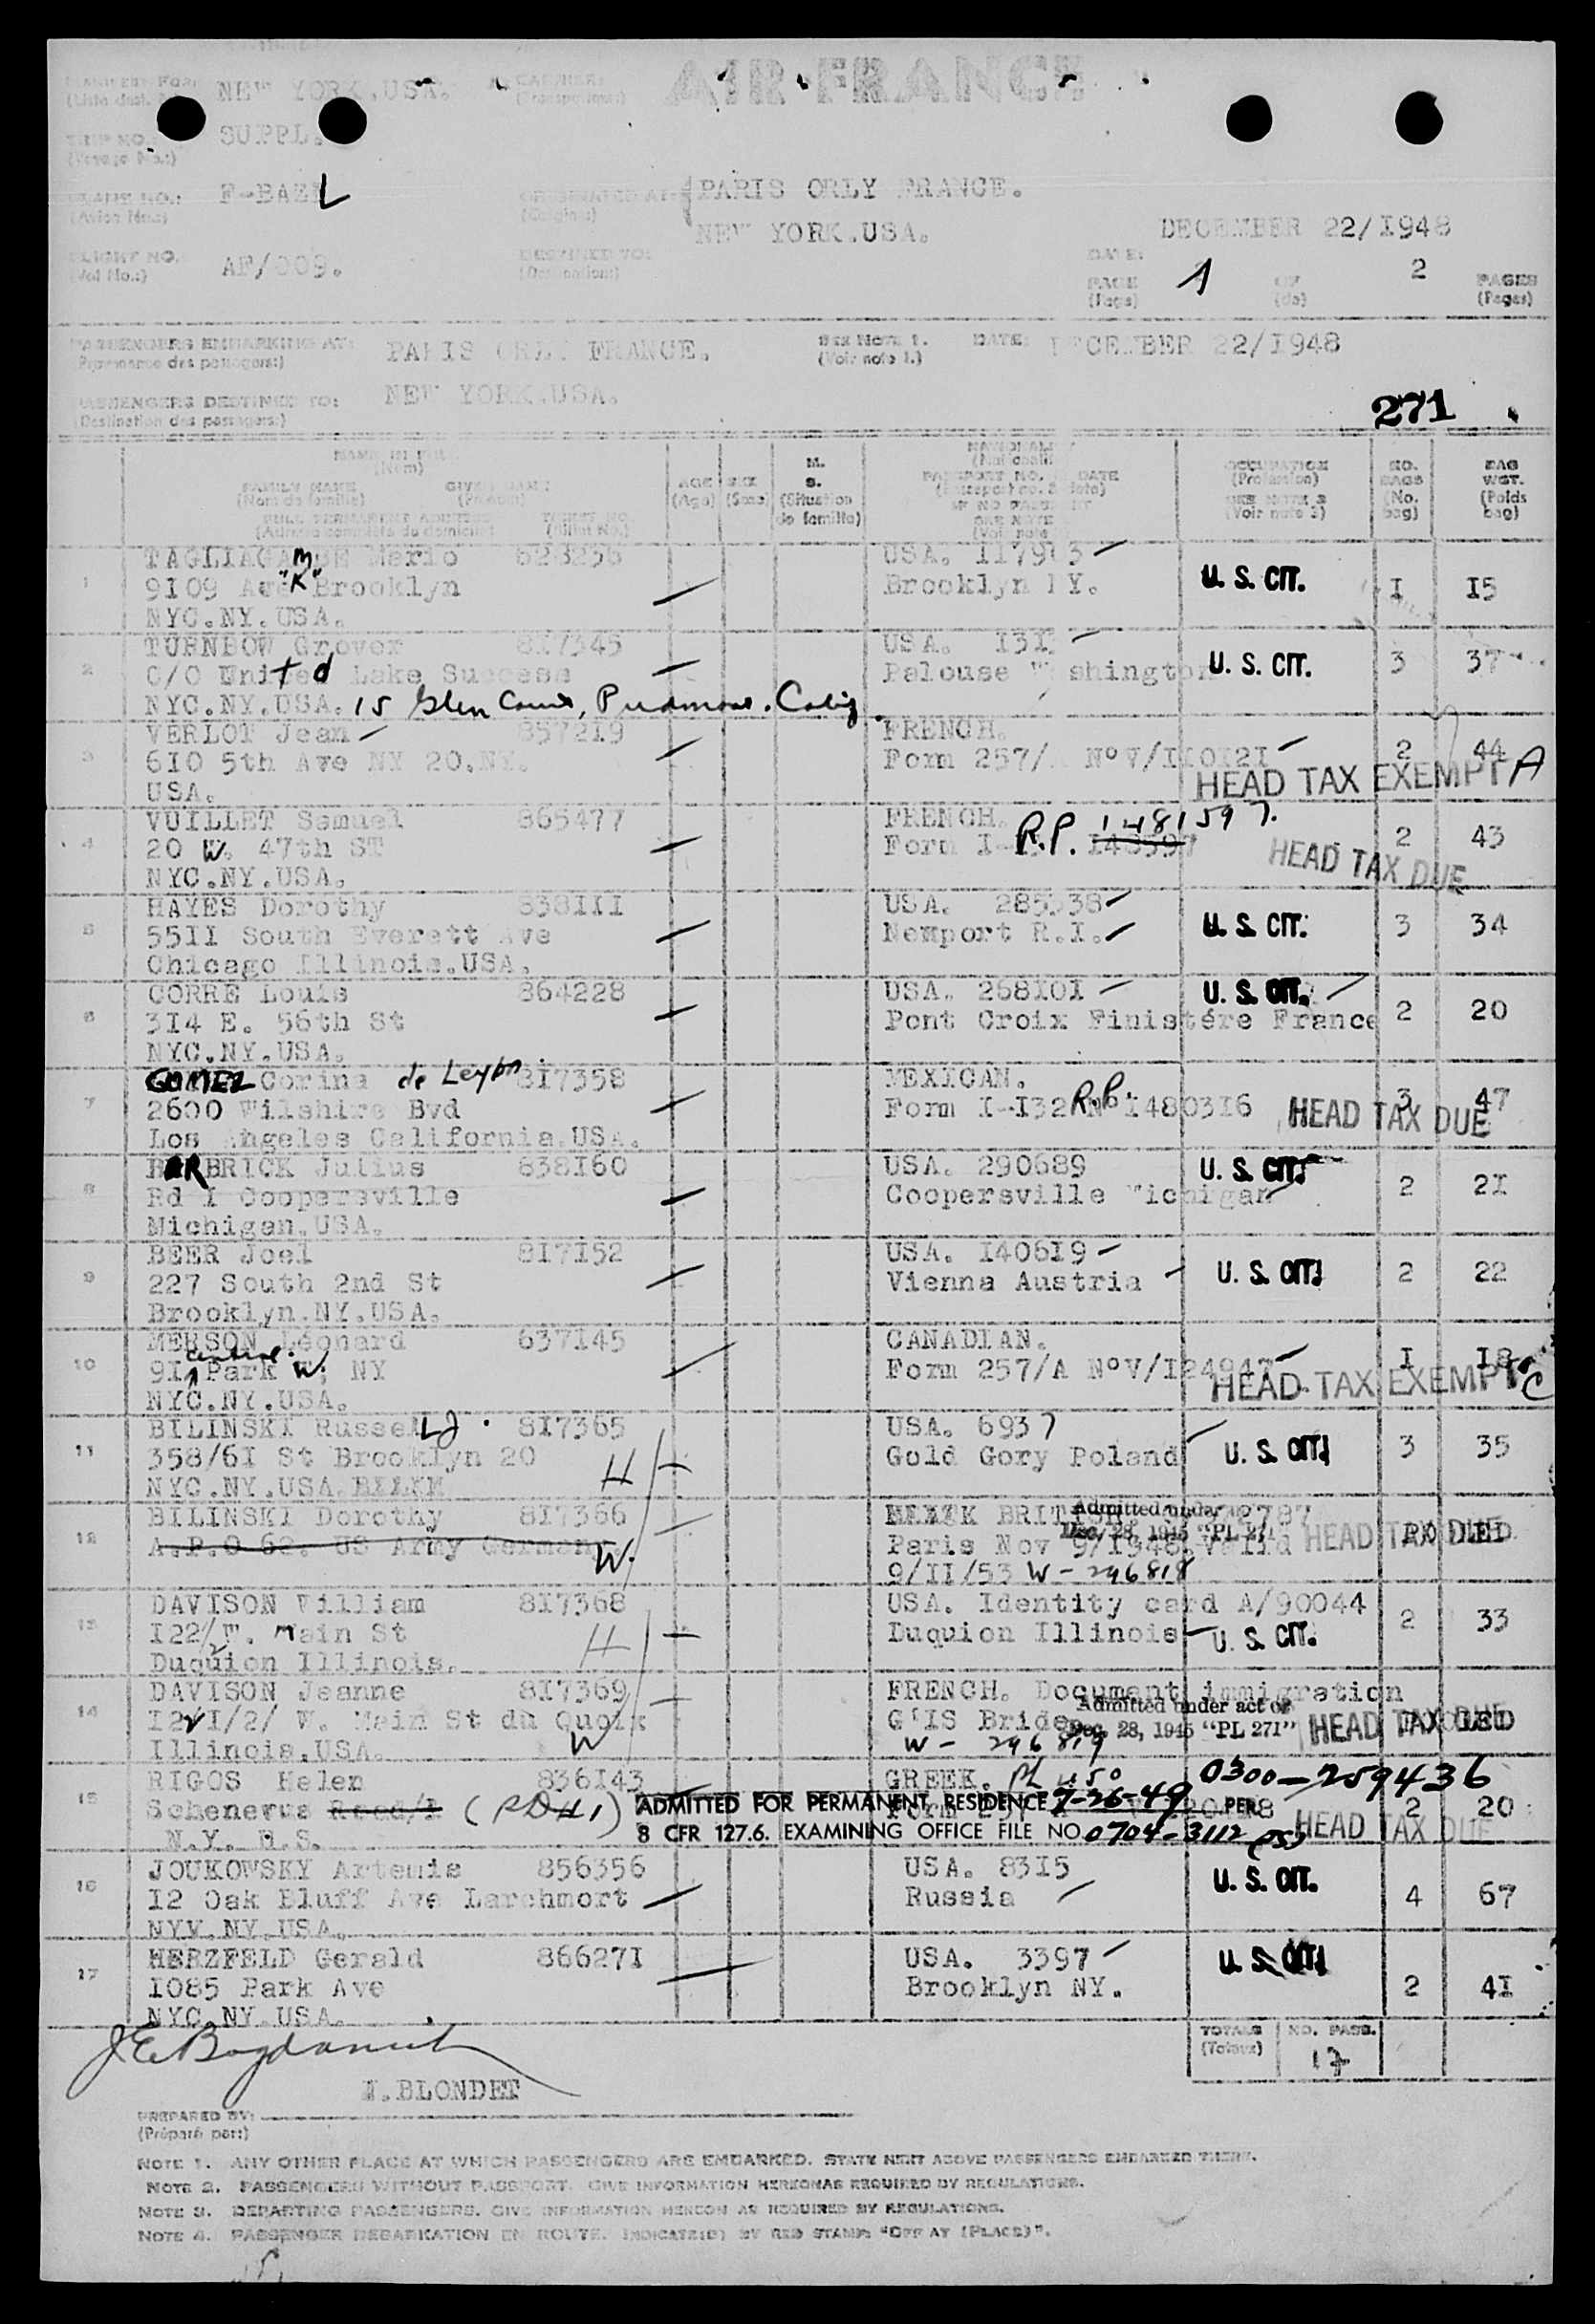 MANIFEST FOR: NEW YORK.USA. CARRIER: AIR FRANCE
(Liste dest. (Transporteur)
TRIP NO. SUPPL.
(Voyage No.:)
PLANE NO.: F-BAZL ORIGINATED AT: PARIS ORLY FRANCE.
(Avion No.:) (Origine:)
NEW YORK.USA. DECEMBER 22/I948
FLIGHT NO. AF/009. DESTINED TO: DATE:
(Vol No.:) (Destination:) PAGE 1 OF 2 PAGES
(Page) (de) (Pages)
PASSENGERS EMBARKING AT: PARIS ORLY FRANCE. SEE NOTE 1. DATE: DECEMBER 22/I948
(Provenance des passagers:) (Voir note 1.)
PASSENGERS DESTINED TO: NEW YORK.USA.
(Destination des passagers:)
271
NAME IN FULL
(Nom)
FAMILY NAME GIVEN NAME
(Nom de famille) (Prénom)
FULL PERMANENT ADDRESS TICKET NO.
(Adresse complète du domicile) (Billet No.)
AGE (Age) SEX (Sexe) M. S. (Situation de famille)
PASSPORT NO. DATE
OCCUPATION (Profession) SEE NOTE 3 (Voir note 3)
NO. BAGS (No. bag) BAG WGT. (Poids bag)
1 TAGLIAGAMBE Mario 628256 USA. II79 3
9I09 Ave "K" Brooklyn Brooklyn NY. U. S. CIT. I I5
NYC.NY.USA.
2 TURNBOW Grover 8I7345 USA. I3I
C/O United Lake Success Palouse Washington U. S. CIT. 3 37
NYC.NY.USA. 15 Glen Court, Piedmont. Calif.
3 VERLOT Jean 857219 FRENCH.
6I0 5th Ave NY 20.NY. Form 257/ NoV/II0I2I 2 44
USA. HEAD TAX EXEMPT A
4 VUILLET Samuel 865477 FRENCH. R.P. 1481597.
20 W. 47th ST Form I- I48597 HEAD TAX DUE 2 43
NYC.NY.USA.
5 HAYES Dorothy 838III USA. 285538
55II South Everett Ave Newport R.I. U. S. CIT. 3 34
Chicago Illinois.USA.
6 CORRE Louis 864228 USA. 268I0I U. S. CIT.
3I4 E. 56th St Pont Croix Finistére France 2 20
NYC.NY.USA.
7 GOMEZ Corina de Leybn 8I7358 MEXICAN. R.P.
2600 Wilshire Bvd Form I-I32 No I4803I6 HEAD TAX DUE 3 47
Los Angeles California.USA.
8 BARBRICK Julius 838I60 USA. 290689 U. S. CIT.
Rd I Coopersville Coopersville Michigan 2 2I
Michigan.USA.
9 BEER Joel 8I7I52 USA. I406I9
227 South 2nd St Vienna Austria U. S. CIT. 2 22
Brooklyn.NY.USA.
10 MERSON Léonard 637I45 CANADIAN.
9I central Park W. NY Form 257/A NoV/I24947 I I8
NYC.NY.USA. HEAD TAX EXEMPT C
11 BILINSKI Russell J. 8I7365 USA. 6937
358/6I St Brooklyn 20 H Gold Gory Poland U. S. CIT. 3 35
NYC.NY.USA.
12 BILINSKI Dorothy 8I7366 BRITISH Admitted under
A.P.O 62. US Army Germany W. Paris Nov 9/I948.Valid Dec. 28, 1945 "PL 271" HEAD TAX DUE
9/II/53 W-296818
13 DAVISON William 8I7368 USA. Identity card A/90044
I22/ W. Main St H Duquion Illinois U. S. CIT. 2 33
Duquion Illinois.
14 DAVISON Jeanne 8I7369 FRENCH. Document immigration
I2 I/2/ W. Main St du Quoix G'IS Brides Admitted under act of Dec. 28, 1945 "PL 271" HEAD TAX DUE
Illinois.USA. W W- 296819
15 RIGOS Helen 836I43 GREEK. PL 450 0300-259436
Schenevus Road/I (RD#1) ADMITTED FOR PERMANENT RESIDENCE 7-26-49 PER 2 20
N.Y. U.S. 8 CFR 127.6. EXAMINING OFFICE FILE NO. 0704-3112 HEAD TAX DUE
16 JOUKOWSKY Artemis 856356 USA. 83I5
I2 Oak Bluff Ave Larchmort Russia U. S. CIT. 4 67
NYV.NY.USA.
17 HERZFELD Gerald 86627I USA. 3397
I085 Park Ave Brooklyn NY. U. S. CIT. 2 4I
NYC.NY.USA.
TOTALS NO. PASS.
(Totaux) 17
BLONDET
PREPARED BY:
(Préparé par:)
NOTE 1. ANY OTHER PLACE AT WHICH PASSENGERS ARE EMBARKED. STATE NEXT ABOVE PASSENGERS EMBARKED THERE.
NOTE 2. PASSENGERS WITHOUT PASSPORT. GIVE INFORMATION HEREON AS REQUIRED BY REGULATIONS.
NOTE 3. DEPARTING PASSENGERS. GIVE INFORMATION HEREON AS REQUIRED BY REGULATIONS.
NOTE 4. PASSENGER DEBARKATION EN ROUTE. INDICATE(D) BY RED STAMP "OFF AT (PLACE)".